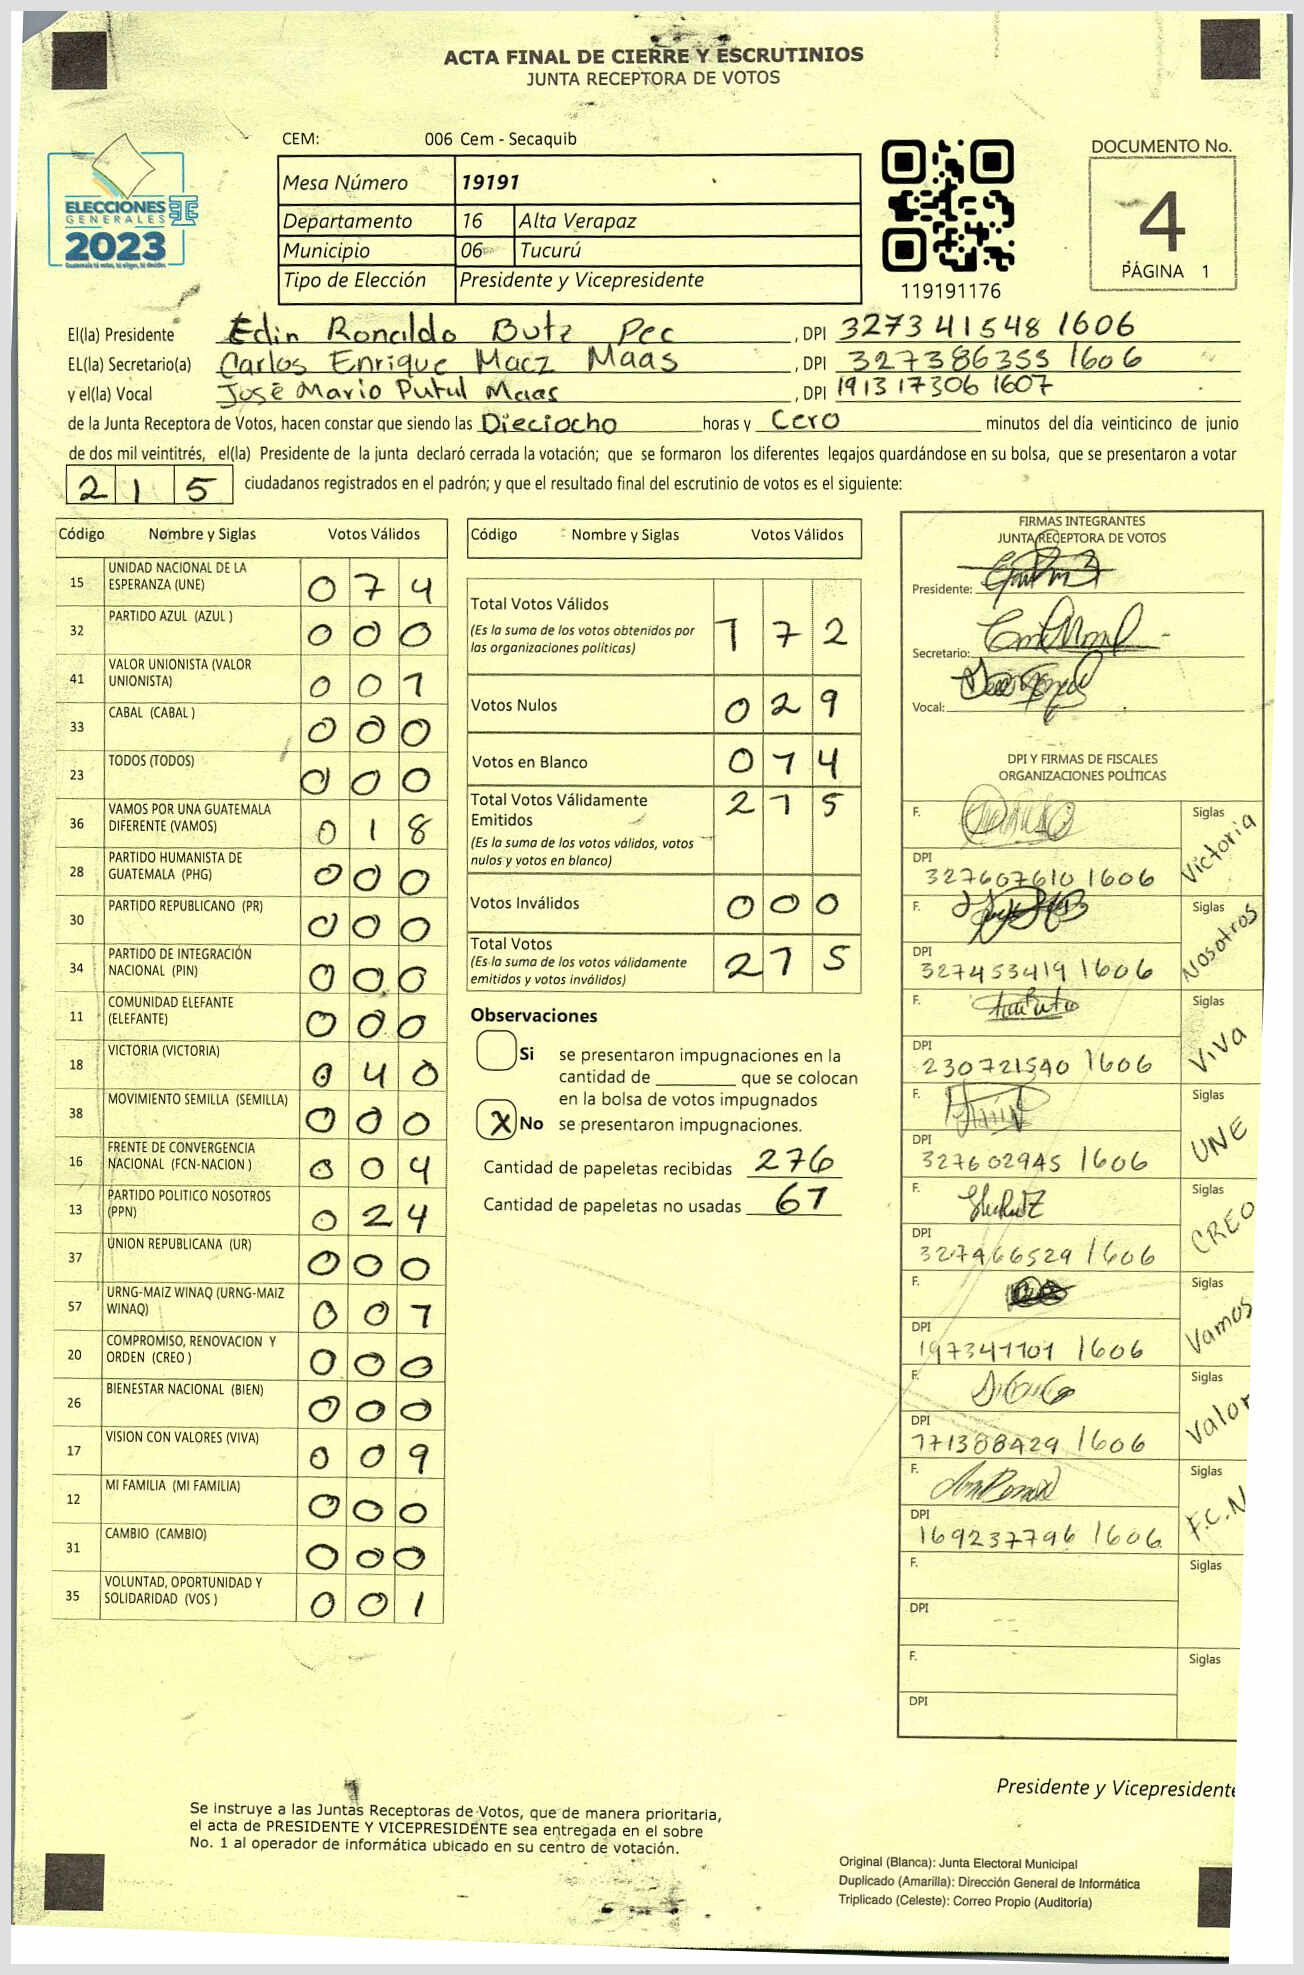 ACTA FINAL DE CIERRE Y ESCRUTINIOS
JUNTA RECEPTORA DE VOTOS
CEM: 006 Cem - Secaquib
DOCUMENTO No.
4
PÁGINA 1
ELECCIONES
GENERALES
2023
Mesa Número 19191
Departamento 16 Alta Verapaz
Municipio 06 Tucurú
Tipo de Elección Presidente y Vicepresidente
119191176
El(la) Presidente Edin Ronaldo Butz Pec, DPI 327341548 1606
EL(la) Secretario(a) Carlos Enrique Macz Maas, DPI 327386353 1606
y el(la) Vocal José Mario Putul Maas, DPI 191317306 1607
de la Junta Receptora de Votos, hacen constar que siendo las Dieciocho horas y Cero minutos del día veinticinco de junio
de dos mil veintitrés, el(la) Presidente de la junta declaró cerrada la votación; que se formaron los diferentes legajos guardándose en su bolsa, que se presentaron a votar
215 ciudadanos registrados en el padrón; y que el resultado final del escrutinio de votos es el siguiente:
Código Nombre y Siglas Votos Válidos
15 UNIDAD NACIONAL DE LA ESPERANZA (UNE) 074
32 PARTIDO AZUL (AZUL ) 000
41 VALOR UNIONISTA (VALOR UNIONISTA) 001
33 CABAL (CABAL ) 000
23 TODOS (TODOS) 000
36 VAMOS POR UNA GUATEMALA DIFERENTE (VAMOS) 018
28 PARTIDO HUMANISTA DE GUATEMALA (PHG) 000
30 PARTIDO REPUBLICANO (PR) 000
34 PARTIDO DE INTEGRACIÓN NACIONAL (PIN) 000
11 COMUNIDAD ELEFANTE (ELEFANTE) 000
18 VICTORIA (VICTORIA) 040
38 MOVIMIENTO SEMILLA (SEMILLA) 000
16 FRENTE DE CONVERGENCIA NACIONAL (FCN-NACION ) 004
13 PARTIDO POLITICO NOSOTROS (PPN) 024
37 UNION REPUBLICANA (UR) 000
57 URNG-MAIZ WINAQ (URNG-MAIZ WINAQ) 001
20 COMPROMISO, RENOVACION Y ORDEN (CREO ) 000
26 BIENESTAR NACIONAL (BIEN) 000
17 VISION CON VALORES (VIVA) 009
12 MI FAMILIA (MI FAMILIA) 000
31 CAMBIO (CAMBIO) 000
35 VOLUNTAD, OPORTUNIDAD Y SOLIDARIDAD (VOS ) 001
Código Nombre y Siglas Votos Válidos
Total Votos Válidos 172
(Es la suma de los votos obtenidos por
las organizaciones políticas)
Votos Nulos 029
Votos en Blanco 014
Total Votos Válidamente Emitidos 215
(Es la suma de los votos válidos, votos
nulos y votos en blanco)
Votos Inválidos 000
Total Votos 215
(Es la suma de los votos válidamente
emitidos y votos inválidos)
Observaciones
Si se presentaron impugnaciones en la
cantidad de ________ que se colocan
en la bolsa de votos impugnados
X No se presentaron impugnaciones.
Cantidad de papeletas recibidas 276
Cantidad de papeletas no usadas 61
FIRMAS INTEGRANTES
JUNTA RECEPTORA DE VOTOS
Presidente:
Secretario:
Vocal:
DPI Y FIRMAS DE FISCALES
ORGANIZACIONES POLÍTICAS
F. Siglas Victoria
DPI 327607610 1606
F. Siglas Nosotros
DPI 327453419 1606
F. Siglas Viva
DPI 230721540 1606
F. Siglas UNE
DPI 327602945 1606
F. Siglas CREO
DPI 327466529 1606
F. Siglas Vamos
DPI 197341101 1606
F. Siglas Valor
DPI 171388429 1606
F. Siglas F.C.N
DPI 169237796 1606
F. Siglas
DPI
F. Siglas
DPI
Presidente y Vicepresidente
Se instruye a las Juntas Receptoras de Votos, que de manera prioritaria,
el acta de PRESIDENTE Y VICEPRESIDENTE sea entregada en el sobre
No. 1 al operador de informática ubicado en su centro de votación.
Original (Blanca): Junta Electoral Municipal
Duplicado (Amarilla): Dirección General de Informática
Triplicado (Celeste): Correo Propio (Auditoría)